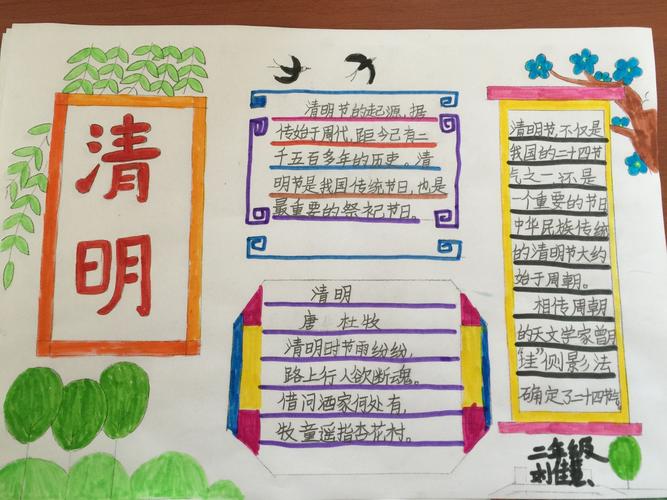 清
明
清明节的起源,据
传始于周代,距今已有二
千五百多年的历史。清
明节是我国传统节日,也是
最重要的祭祀节日。
清明
唐 杜牧
清明时节雨纷纷,
路上行人欲断魂。
借问酒家何处有,
牧童遥指杏花村。
清明节,不仅是
我国的二十四节
气之一,还是
一个重要的节日
中华民族传统
的清明节大约
始于周朝。
相传周朝
的天文学家曾用
"圭"侧影法
确定了二十四节气
二年级
刘佳慧